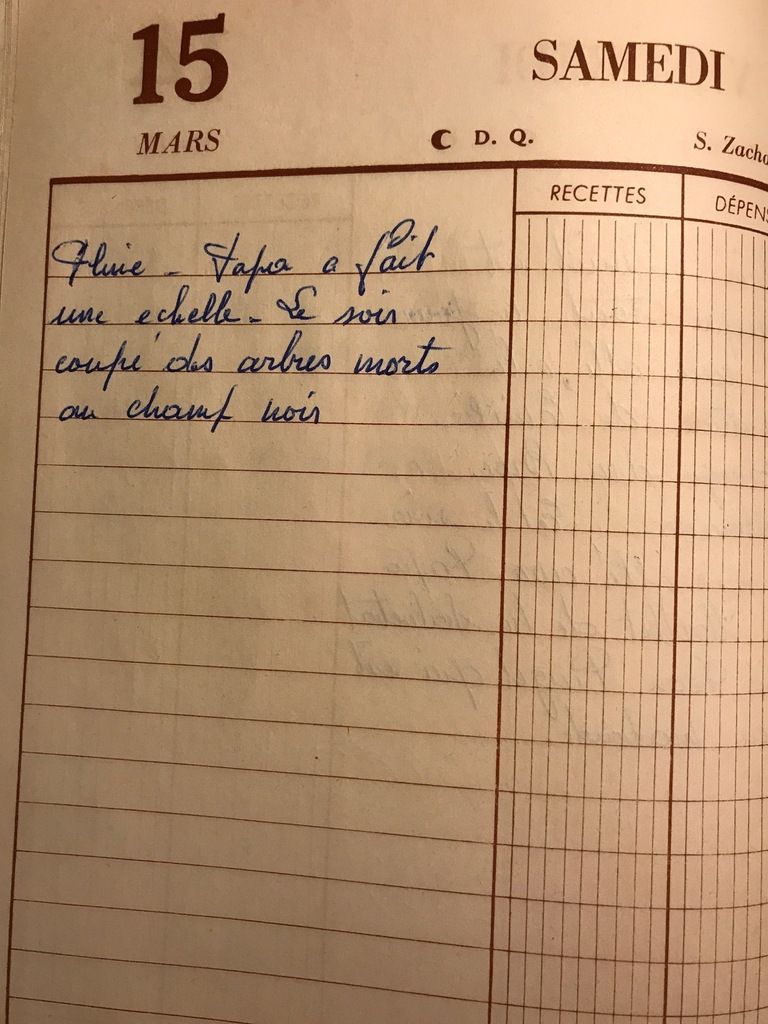 15 SAMEDI
MARS D. Q. S. Zacha
RECETTES DÉPENS
Pluie - Papa a fait
une echelle - Le soir
coupé des arbres morts
au champ noir